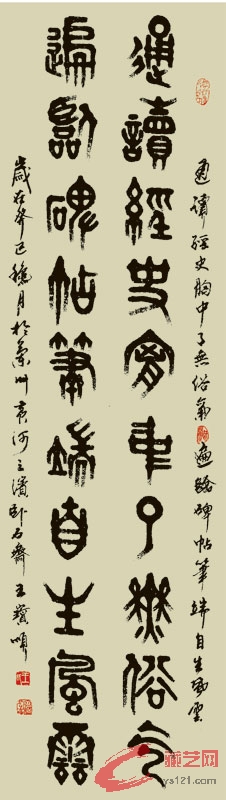 通讀經史胸中了無俗氣遍臨碑帖筆端自生風雲
通讀經史胸中了無俗气
遍臨碑帖筆端自生風雲
歲在癸巳穐月於蘭州黃河之濱卧石齋王
藏艺网
ys121.com